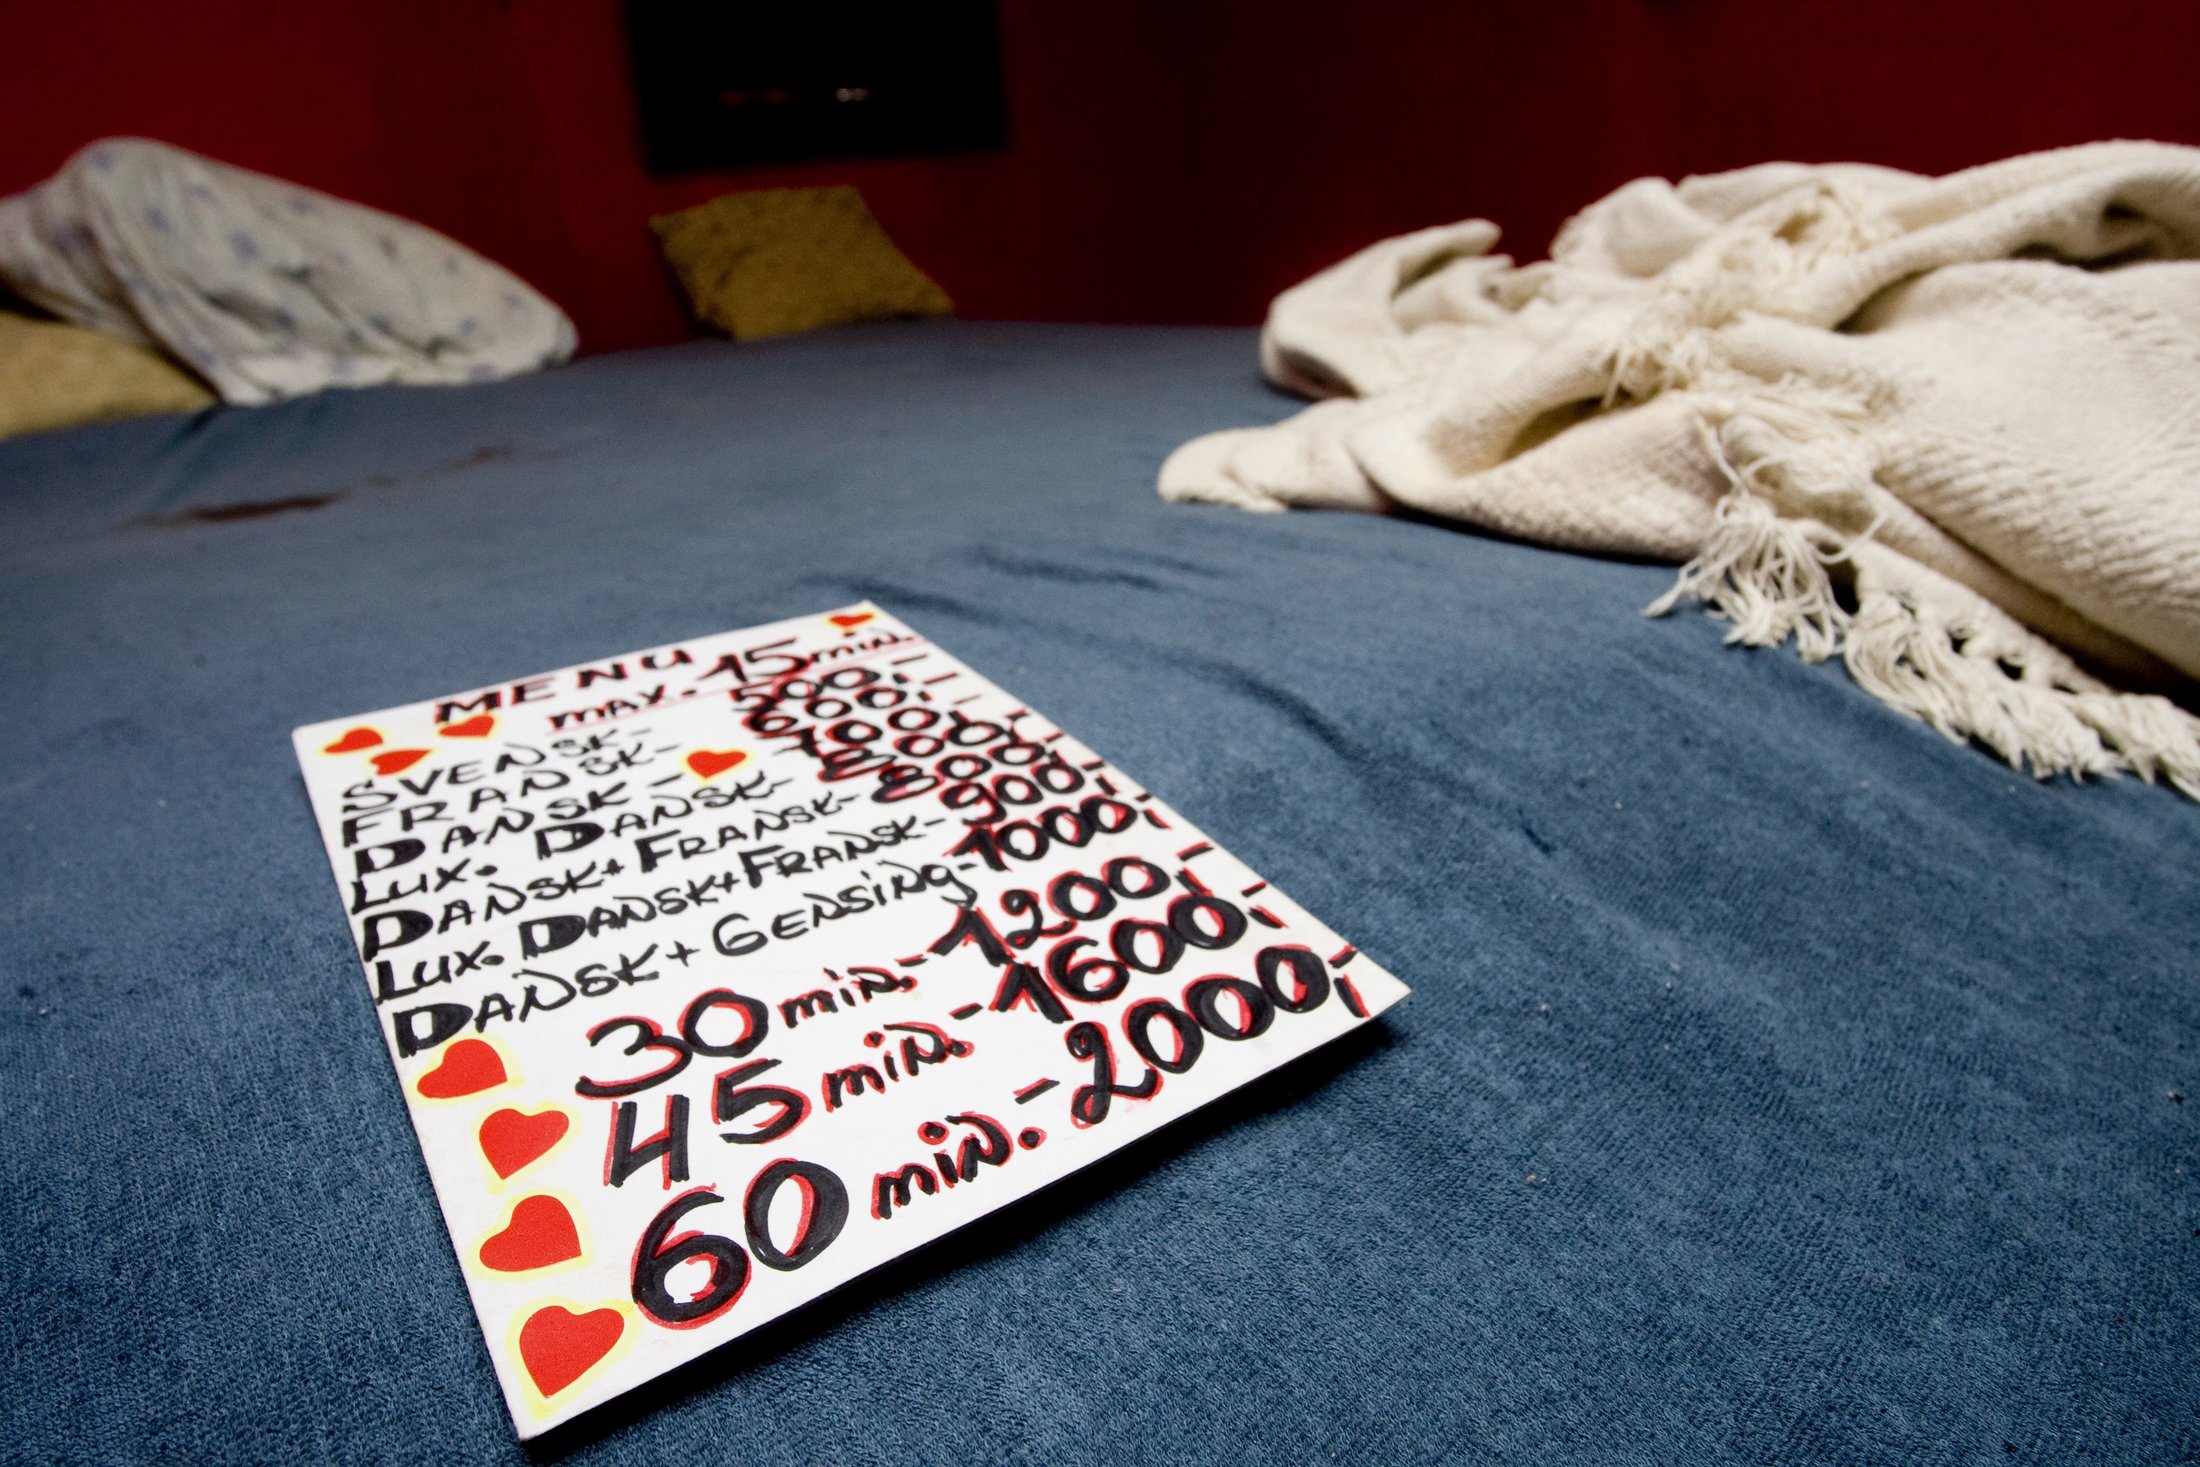 MENU
max. 15 min.
SVENSK- 500,-
FRANSK-
DANSK-
LUX. DANSK-
DANSK+FRANSK-
LUX. DANSK+FRANSK- 900,-
DANSK+GENSING- 1000,-
30 min.- 1200,-
45 min.- 1600,-
60 min.- 2000,-